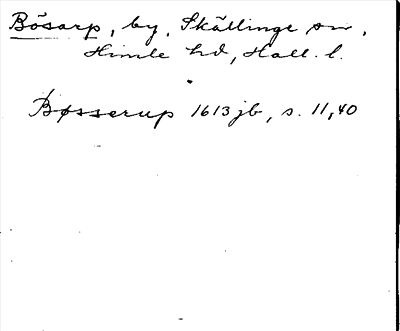 Bösarp, by, Skällinge sn,
Himle hd, Hall. l.
Bøsserup 1613 jb, s. 11, 40